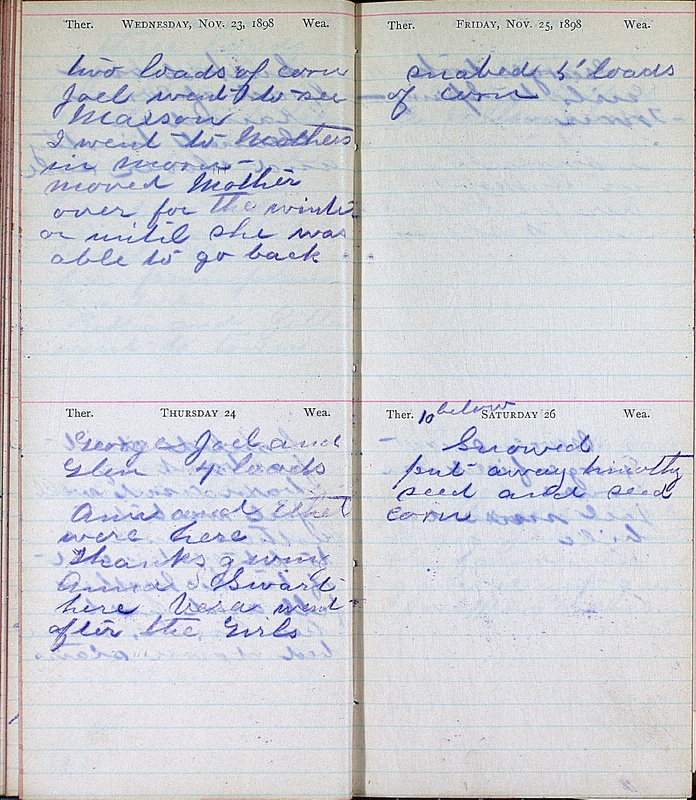 Ther. WEDNESDAY, NOV. 23, 1898 Wea.
two loads of corn
Joel went to see
Masson
I went to Mothers
in morn-
moved Mother
over for the winter
or until she was
able to go back
Ther. THURSDAY 24 Wea.
George Joel and
Glen 4 loads
and Ethel
were here
Thanks giving
Anna Swart
here Vera went
after the Girls
Ther. FRIDAY, NOV. 25, 1898 Wea.
snabed 5 loads
of corn
Ther. 10 below SATURDAY 26 Wea.
Snowed
put away timothy
seed and seed
corn